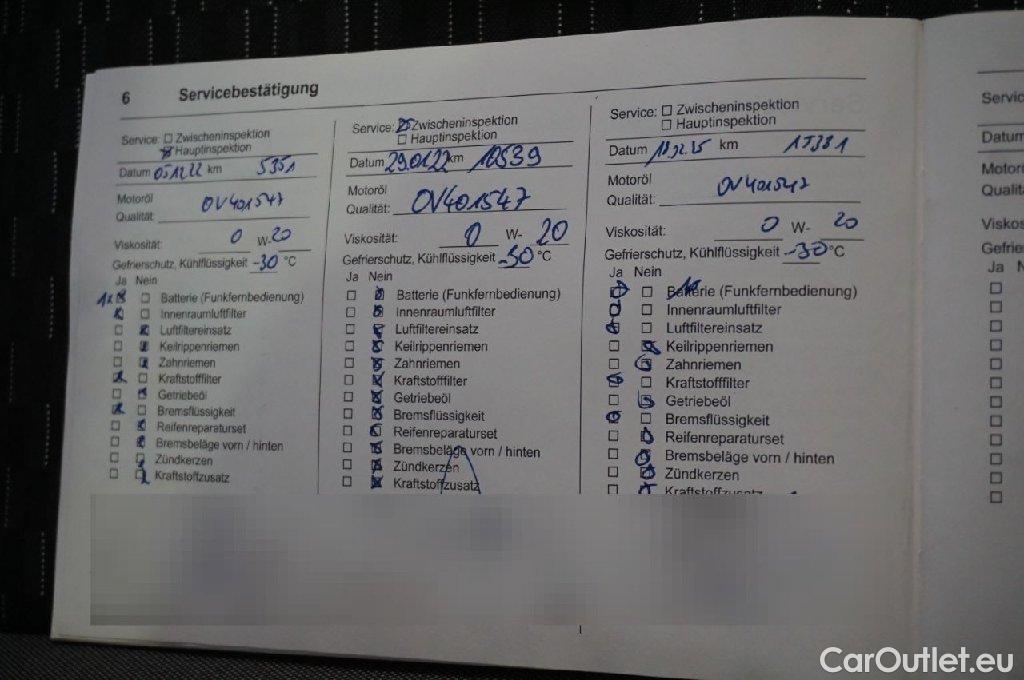 6 Servicebestätigung
Service: Zwischeninspektion
Hauptinspektion
Datum 05.12.22 km 5351
Motoröl
Qualität: OV401547
Viskosität: 0 W- 20
Gefrierschutz, Kühlflüssigkeit -30 °C
Ja Nein
1x Batterie (Funkfernbedienung)
Innenraumluftfilter
Luftfiltereinsatz
Keilrippenriemen
Zahnriemen
Kraftstofffilter
Getriebeöl
Bremsflüssigkeit
Reifenreparaturset
Bremsbeläge vorn / hinten
Zündkerzen
Kraftstoffzusatz
Service: Zwischeninspektion
Hauptinspektion
Datum km 10539
Motoröl
Qualität: OV401547
Viskosität: 0 W- 20
Gefrierschutz, Kühlflüssigkeit -30 °C
Ja Nein
Batterie (Funkfernbedienung)
Innenraumluftfilter
Luftfiltereinsatz
Keilrippenriemen
Zahnriemen
Kraftstofffilter
Getriebeöl
Bremsflüssigkeit
Reifenreparaturset
Bremsbeläge vorn / hinten
Zündkerzen
Kraftstoffzusatz
Service: Zwischeninspektion
Hauptinspektion
Datum km 15381
Motoröl
Qualität: OV401547
Viskosität: 0 W- 20
Gefrierschutz, Kühlflüssigkeit -30 °C
Ja Nein
Batterie (Funkfernbedienung)
Innenraumluftfilter
Luftfiltereinsatz
Keilrippenriemen
Zahnriemen
Kraftstofffilter
Getriebeöl
Bremsflüssigkeit
Reifenreparaturset
Bremsbeläge vorn / hinten
Zündkerzen
Kraftstoffzusatz
Servic
Datum
Motor
Qualit
Visko
Gefrie
Ja N
CarOutlet.eu